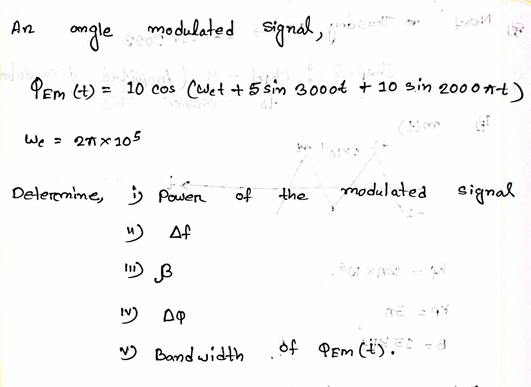 An angle modulated signal,
φEm (t) = 10 cos (ωct + 5 sin 3000t + 10 sin 2000πt)
ωc = 2π × 10⁵
Determine, i) Power of the modulated signal
ii) Δf
iii) β
iv) Δφ
v) Bandwidth of φEm (t).